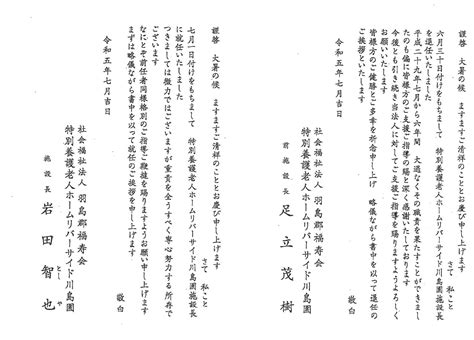 謹啓　大暑の候　ますますご清祥のこととお慶び申し上げます
さて　私こと
六月三十日付けをもちまして　特別養護老人ホームリバーサイド川島園施設長
を退任いたしました
平成二十九年七月から六年間　大過なくその職責を果たすことができまし
たのも偏に皆様方のご支援ご指導の賜と深く感謝いたしております
今後とも引き続き当法人に対してご支援ご指導を賜りますようよろしく
お願いいたします
皆様方のご健勝とご多幸を祈念申し上げ　略儀ながら書中を以って退任の
ご挨拶といたします
敬白
令和五年七月吉日
社会福祉法人　羽島郡福寿会
特別養護老人ホームリバーサイド川島園
前施設長　足立茂樹
謹啓　大暑の候　ますますご清祥のこととお慶び申し上げます
さて　私こと
七月一日付けをもちまして　特別養護老人ホームリバーサイド川島園施設長
に就任いたしました
つきましては微力ではございますが重責を全うすべく専心努力する所存で
ございます
なにとぞ前任者同様格別のご指導ご鞭撻を賜りますようお願い申し上げます
まずは略儀ながら書中を以って就任のご挨拶を申し上げます
敬白
令和五年七月吉日
社会福祉法人　羽島郡福寿会
特別養護老人ホームリバーサイド川島園
施設長　岩田智也
としや